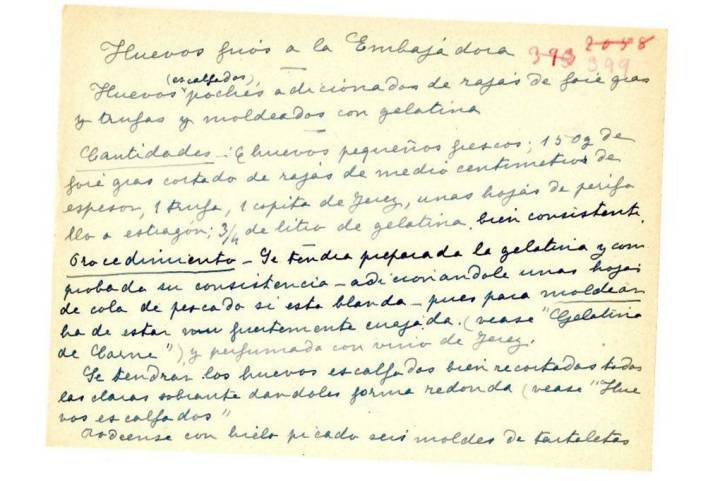 Huevos frios a la Embajadora
393 2058
399
Huevos (escalfados) pochés adicionados de rajas de foie gras
y trufas y moldeados con gelatina
Cantidades - 6 huevos pequeños frescos; 150 g de
foie gras cortado de rajas de medio centimetro de
espesor, 1 trufa, 1 copita de Jerez, unas hojas de perifo
llo o estragón; 3/4 de litro de gelatina bien consistente.
Procedimiento - Se tendra preparada la gelatina y com
probada su consistencia - adicionandole unas hojas
de cola de pescado si esta blanda - pues para moldear
ha de estar muy fuertemente cuajada. (vease "Gelatina
de Carne") y perfumada con vino de Jerez.
Se tendran los huevos escalfados bien recortadas todas
las claras sobrante dandoles forma redonda (vease "Hue
vos escalfados"
Rodeense con hielo picado seis moldes de tartaletas